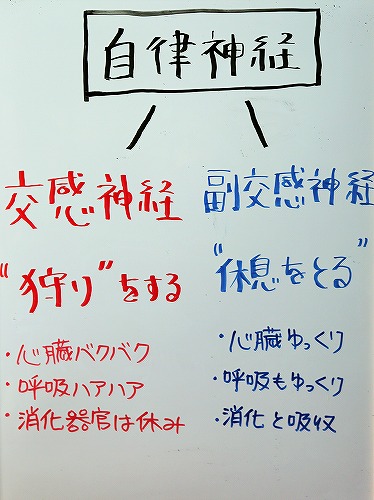 自律神経
交感神経
"狩り"をする
・心臓バクバク
・呼吸ハアハア
・消化器官は休み
副交感神経
"休息をとる"
・心臓ゆっくり
・呼吸もゆっくり
・消化と吸収